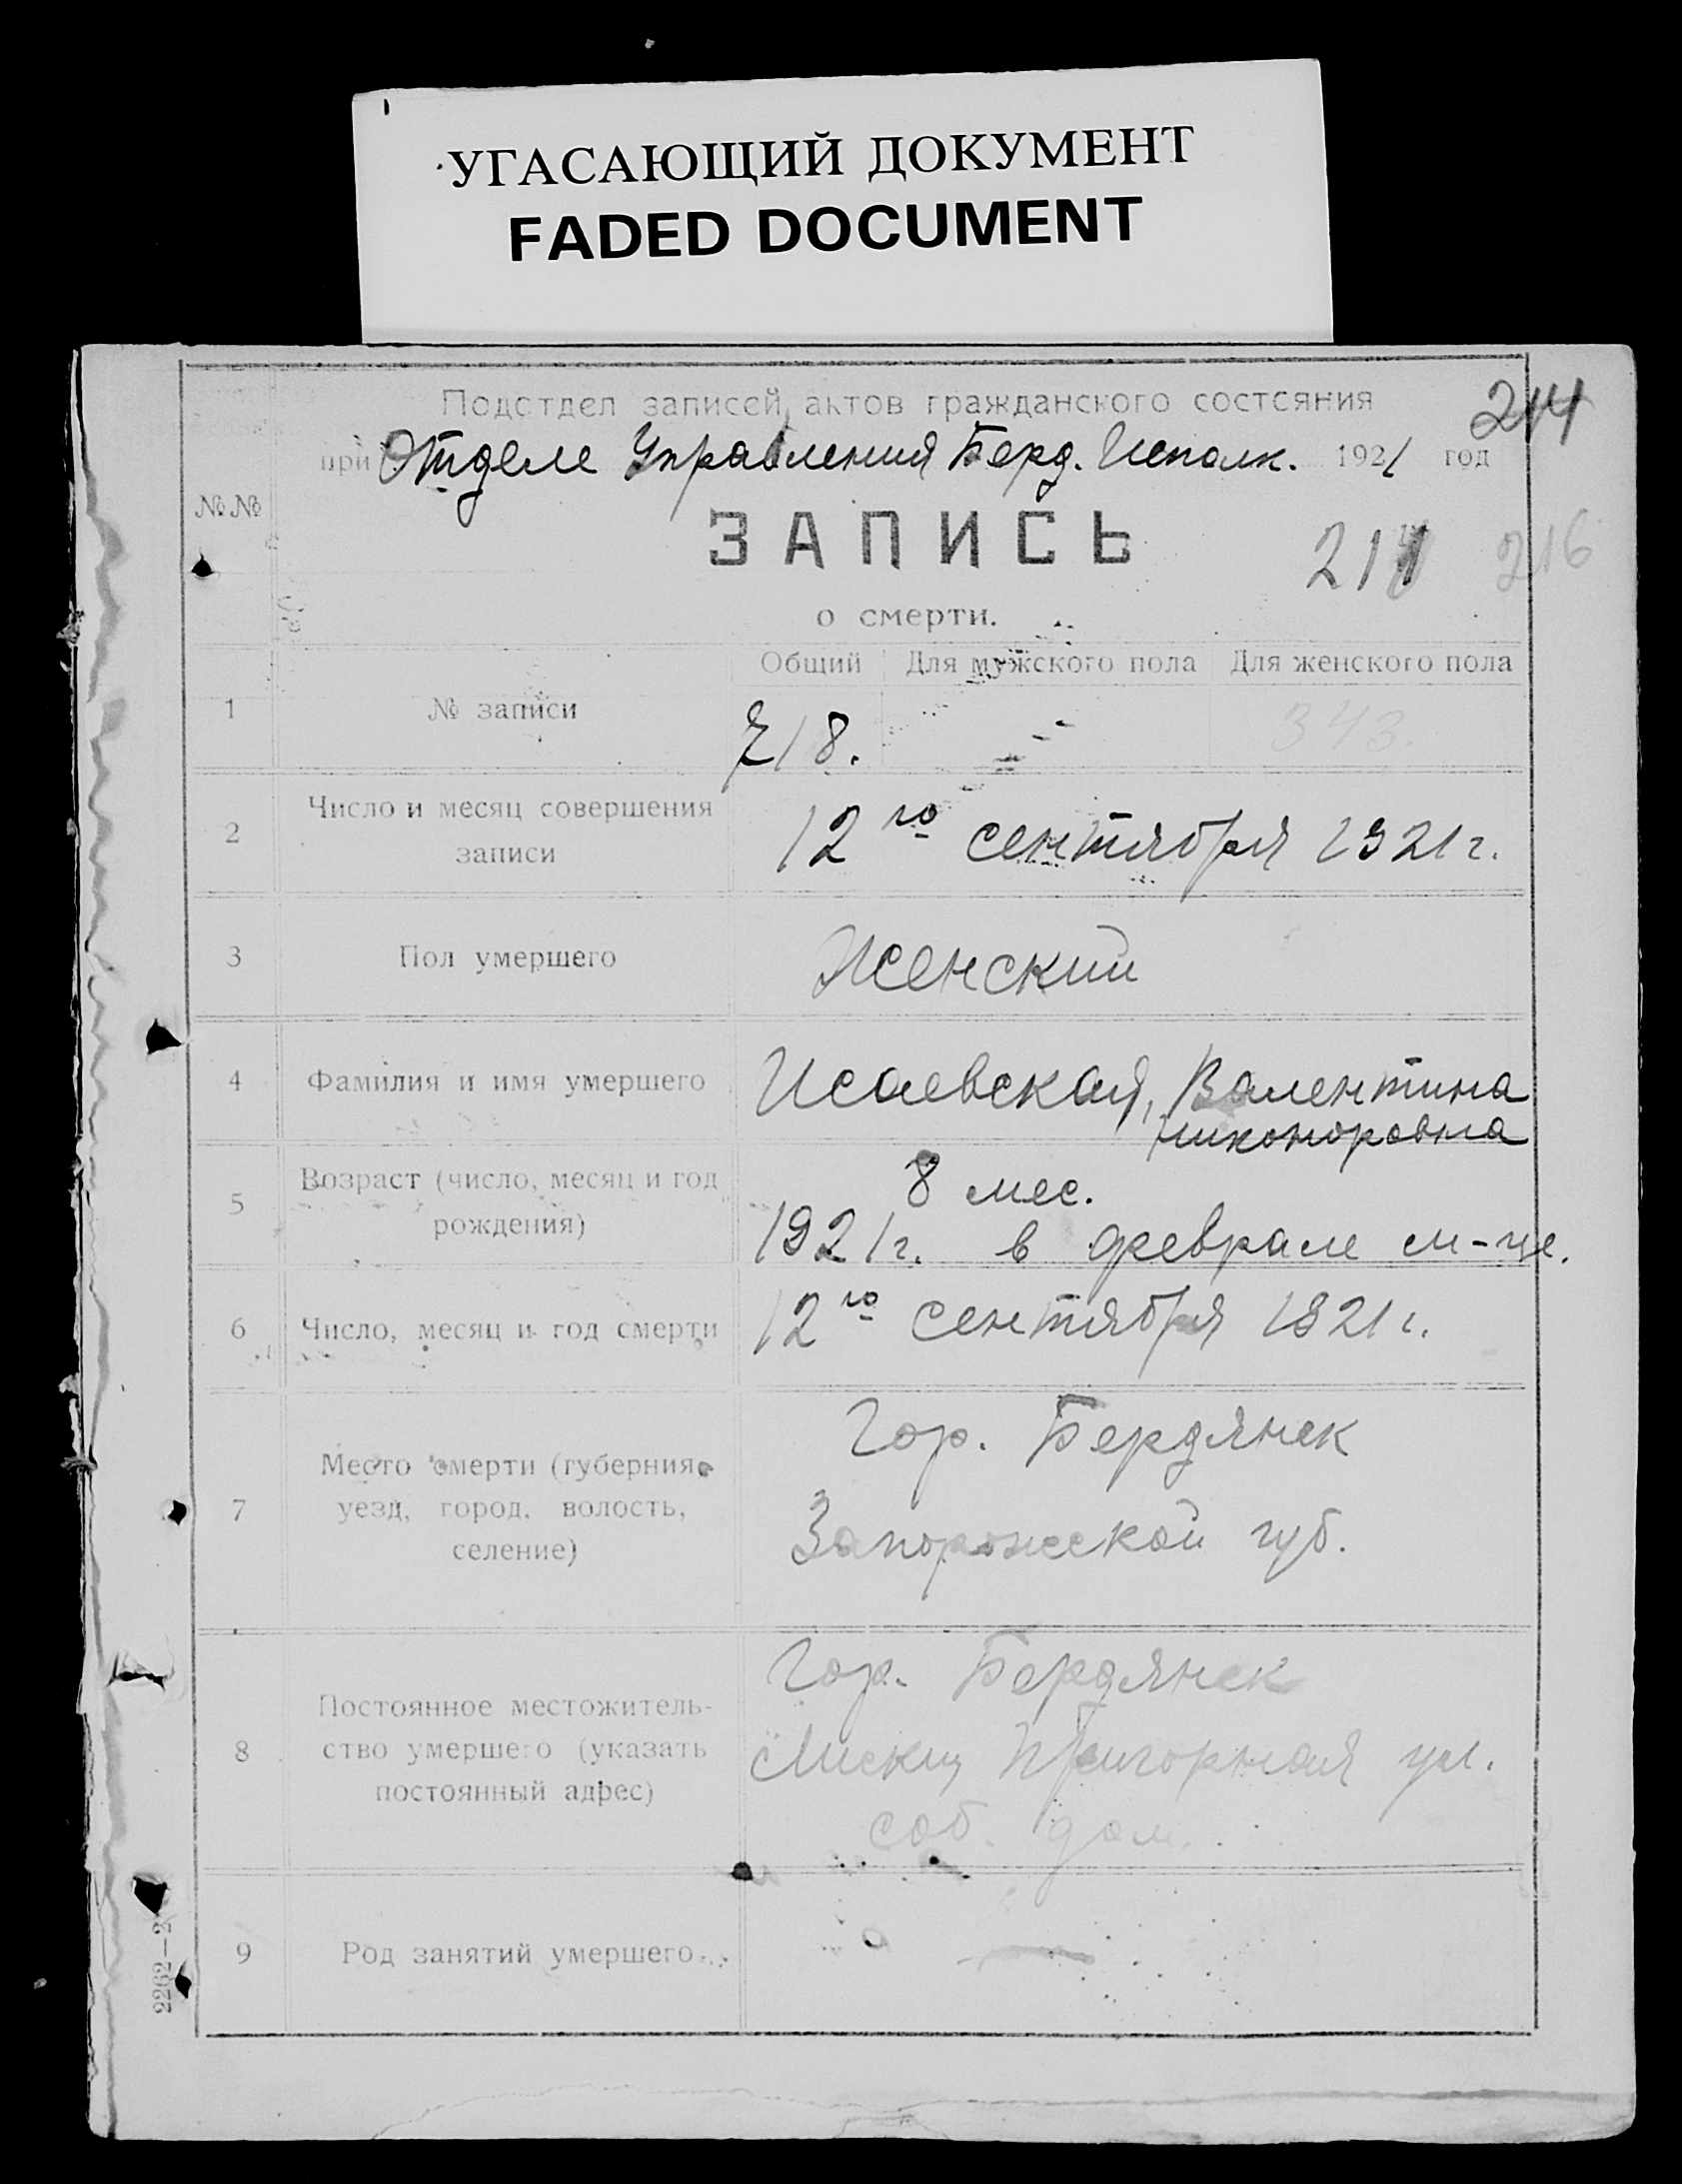 УГАСАЮЩИЙ ДОКУМЕНТ
FADED DOCUMENT
Подотдел записей актов гражданского состояния
214
при Отделе Управления Берд. Исполк. 1921 год
№№
ЗАПИСЬ
216
о смерти.
Общий Для мужского пола Для женского пола
1 № записи 718. - 343.
2 Число и месяц совершения записи 12го сентября 1921 г.
3 Пол умершего Женский
4 Фамилия и имя умершего Исаевская, Валентина
Никоноровна
5 Возраст (число, месяц и год рождения) 8 мес.
1921 г. в феврале м-це.
6 Число, месяц и год смерти 12го сентября 1921 г.
7 Место смерти (губерния, уезд, город, волость, селение) Гор. Бердянск
Запорожской губ.
8 Постоянное местожитель-
ство умершего (указать
постоянный адрес)
Гор. Бердянск
Нагорная ул.
соб. дом.
9 Род занятий умершего
2262—2